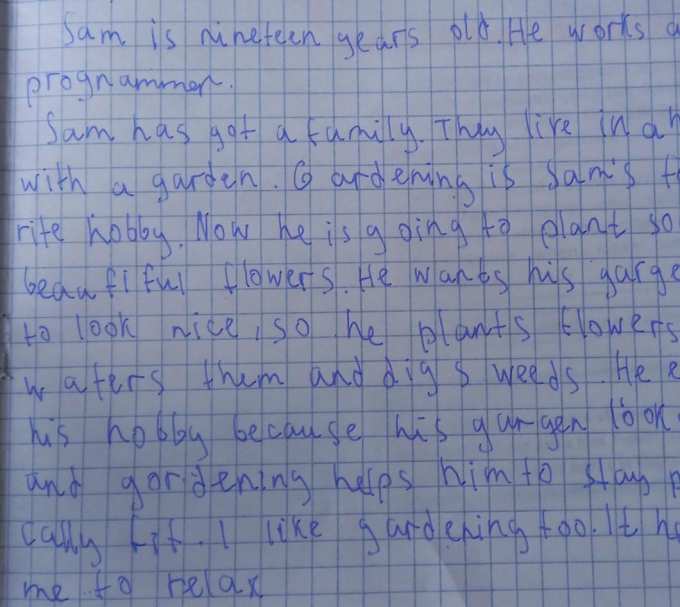 Sam is nineteen years old. He works a
prognammer.
Sam has got a family. They live in a h
with a garden. Gardening is Sam's f
rite hobby. Now he is going to plant so
beautiful flowers. He wants his garge
to look nice, so he plants flowers
waters them and digs weeds. He e
his hobby because his gurgen look
and gordening helps him to stay p
cally fit. I like gardening too. It he
me to relax